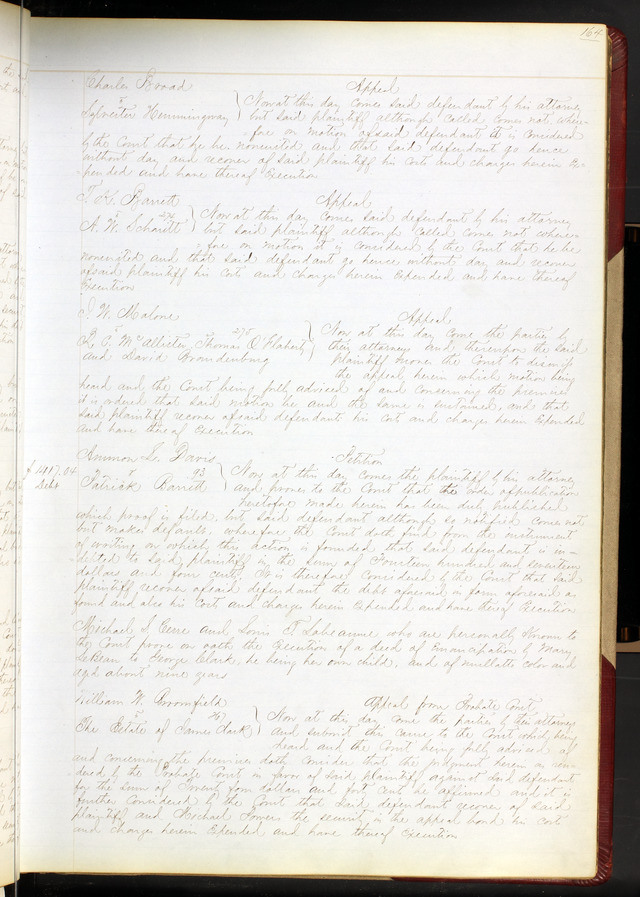 164
Charles Broad Appeal
vs Now at this day comes said defendant by his attorney
Sylvester Hemmingway but said plaintiff although called comes not where-
fore on motion of said defendant it is considered
by the Court that he be nonsuited and that said defendant go hence
without day and recover of said plaintiff his costs and charges herein ex-
pended and have thereof Execution
T. H. Barrett Appeal
vs 274 Now at this day comes said defendant by his attorney
A. W. Schardtt but said plaintiff although called comes not, where-
fore on motion it is considered by the Court that he be
nonsuited and that said defendant go hence without day and recover
of said plaintiff his costs and charges herein Expended and have thereof
Execution
W. Malone Appeal
vs 275 Now at this day come the parties by
McAllister, Thomas O'Flaherty their attorneys and thereupon the said
and David Brandenburg plaintiff moves the Court to dismiss
the appeal herein which motion being
heard and the Court being fully advised of and concerning the premises
it is ordered that said motion be and the same is sustained, and that
said plaintiff recover of said defendant his costs and charges herein Expended
and have thereof Execution
Ammon L. Davis Petition
$1417.04 vs 93 Now at this day comes the plaintiff by his attorney
Debt Patrick Barrett and proves to the Court that the order of publication
heretofore made herein has been duly published
which proof is filed, but said defendant although so notified comes not
but makes default, wherefore the Court doth find from the instrument
of writing on which this action is founded that said defendant is in-
debted to said plaintiff in the sum of Fourteen hundred and seventeen
dollars and four cents, It is therefore considered by the Court that said
plaintiff recover of said defendant the debt aforesaid in form aforesaid
found and also his costs and charges herein Expended and have thereof Execution
Michael S. Cerre and Louis T. Labeaume who are personally known to
the Court prove on oath the Execution of a deed of Emancipation by Mary
to George Clark, he being her own child, and of mullatto color and
aged about nine years
William W. Broomfield Appeal from Probate Court
vs 267 Now at this day come the parties by their attorneys
The Estate of James Clark and submit this cause to the Court which being
heard and the Court being fully advised of
and concerning the premises doth consider that the judgment herein as ren-
dered by the Probate Court in favor of said plaintiff against said defendant
for the sum of Twenty four dollars and forty cents be affirmed and it is
further considered by the Court that said defendant recover of said
plaintiff and Michael Powers the security in the appeal bond his costs
and charges herein Expended and have thereof Execution